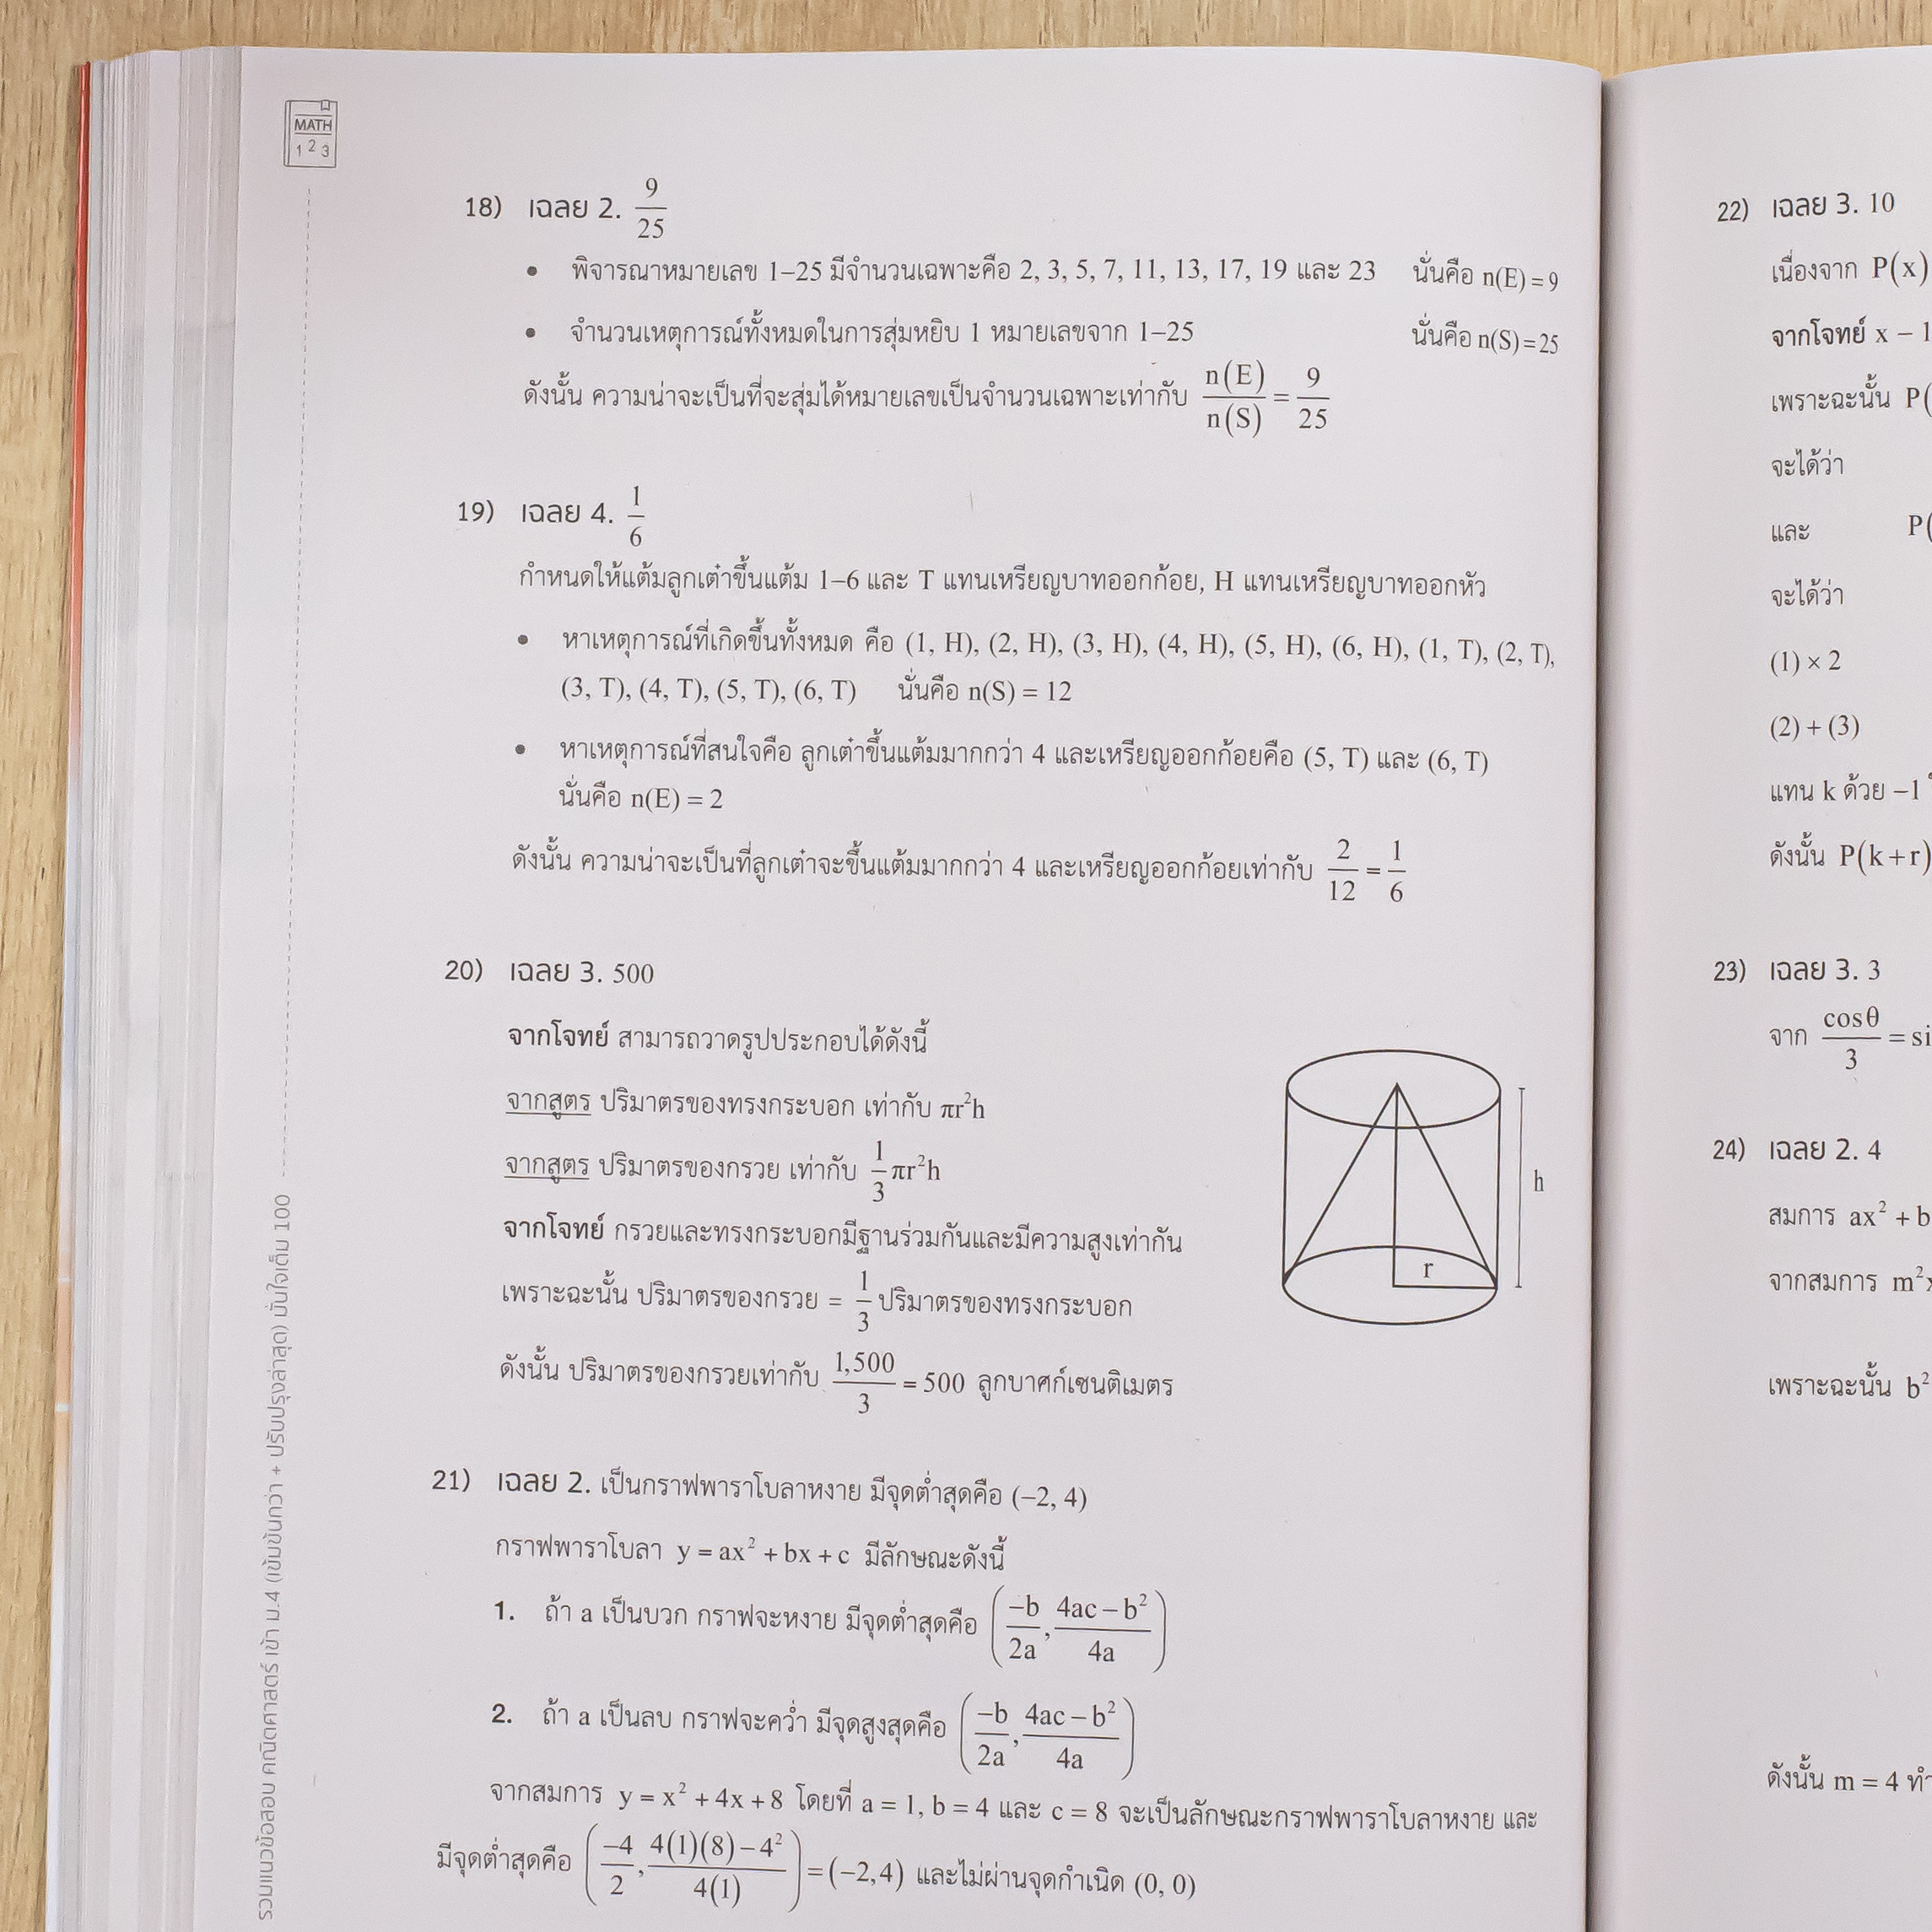 MATH
1 2 3
18) เฉลย 2. 9/25
• พิจารณาหมายเลข 1–25 มีจำนวนเฉพาะคือ 2, 3, 5, 7, 11, 13, 17, 19 และ 23 นั่นคือ n(E) = 9
• จำนวนเหตุการณ์ทั้งหมดในการสุ่มหยิบ 1 หมายเลขจาก 1–25 นั่นคือ n(S) = 25
ดังนั้น ความน่าจะเป็นที่จะสุ่มได้หมายเลขเป็นจำนวนเฉพาะเท่ากับ n(E)/n(S) = 9/25
19) เฉลย 4. 1/6
กำหนดให้แต้มลูกเต๋าขึ้นแต้ม 1–6 และ T แทนเหรียญบาทออกก้อย, H แทนเหรียญบาทออกหัว
• หาเหตุการณ์ที่เกิดขึ้นทั้งหมด คือ (1, H), (2, H), (3, H), (4, H), (5, H), (6, H), (1, T), (2, T),
(3, T), (4, T), (5, T), (6, T) นั่นคือ n(S) = 12
• หาเหตุการณ์ที่สนใจคือ ลูกเต๋าขึ้นแต้มมากกว่า 4 และเหรียญออกก้อยคือ (5, T) และ (6, T)
นั่นคือ n(E) = 2
ดังนั้น ความน่าจะเป็นที่ลูกเต๋าจะขึ้นแต้มมากกว่า 4 และเหรียญออกก้อยเท่ากับ 2/12 = 1/6
20) เฉลย 3. 500
จากโจทย์ สามารถวาดรูปประกอบได้ดังนี้
จากสูตร ปริมาตรของทรงกระบอก เท่ากับ πr²h
จากสูตร ปริมาตรของกรวย เท่ากับ 1/3 πr²h
จากโจทย์ กรวยและทรงกระบอกมีฐานร่วมกันและมีความสูงเท่ากัน
เพราะฉะนั้น ปริมาตรของกรวย = 1/3 ปริมาตรของทรงกระบอก
ดังนั้น ปริมาตรของกรวยเท่ากับ 1,500/3 = 500 ลูกบาศก์เซนติเมตร
h
r
21) เฉลย 2. เป็นกราฟพาราโบลาหงาย มีจุดต่ำสุดคือ (–2, 4)
กราฟพาราโบลา y = ax² + bx + c มีลักษณะดังนี้
1. ถ้า a เป็นบวก กราฟจะหงาย มีจุดต่ำสุดคือ (–b/2a, (4ac – b²)/4a)
2. ถ้า a เป็นลบ กราฟจะคว่ำ มีจุดสูงสุดคือ (–b/2a, (4ac – b²)/4a)
จากสมการ y = x² + 4x + 8 โดยที่ a = 1, b = 4 และ c = 8 จะเป็นลักษณะกราฟพาราโบลาหงาย และ
มีจุดต่ำสุดคือ (–4/2, (4(1)(8) – 4²)/4(1)) = (–2, 4) และไม่ผ่านจุดกำเนิด (0, 0)
รวมแนวข้อสอบ คณิตศาสตร์ เข้า ม.4 (เข้มข้นกว่า + ปรับปรุงล่าสุด) มั่นใจเต็ม 100
22) เฉลย 3. 10
เนื่องจาก P(x)
จากโจทย์ x – 1
เพราะฉะนั้น P(
จะได้ว่า
และ P(
จะได้ว่า
(1) × 2
(2) + (3)
แทน k ด้วย –1
ดังนั้น P(k + r)
23) เฉลย 3. 3
จาก cosθ/3 = si
24) เฉลย 2. 4
สมการ ax² + b
จากสมการ m²
เพราะฉะนั้น b²
ดังนั้น m = 4